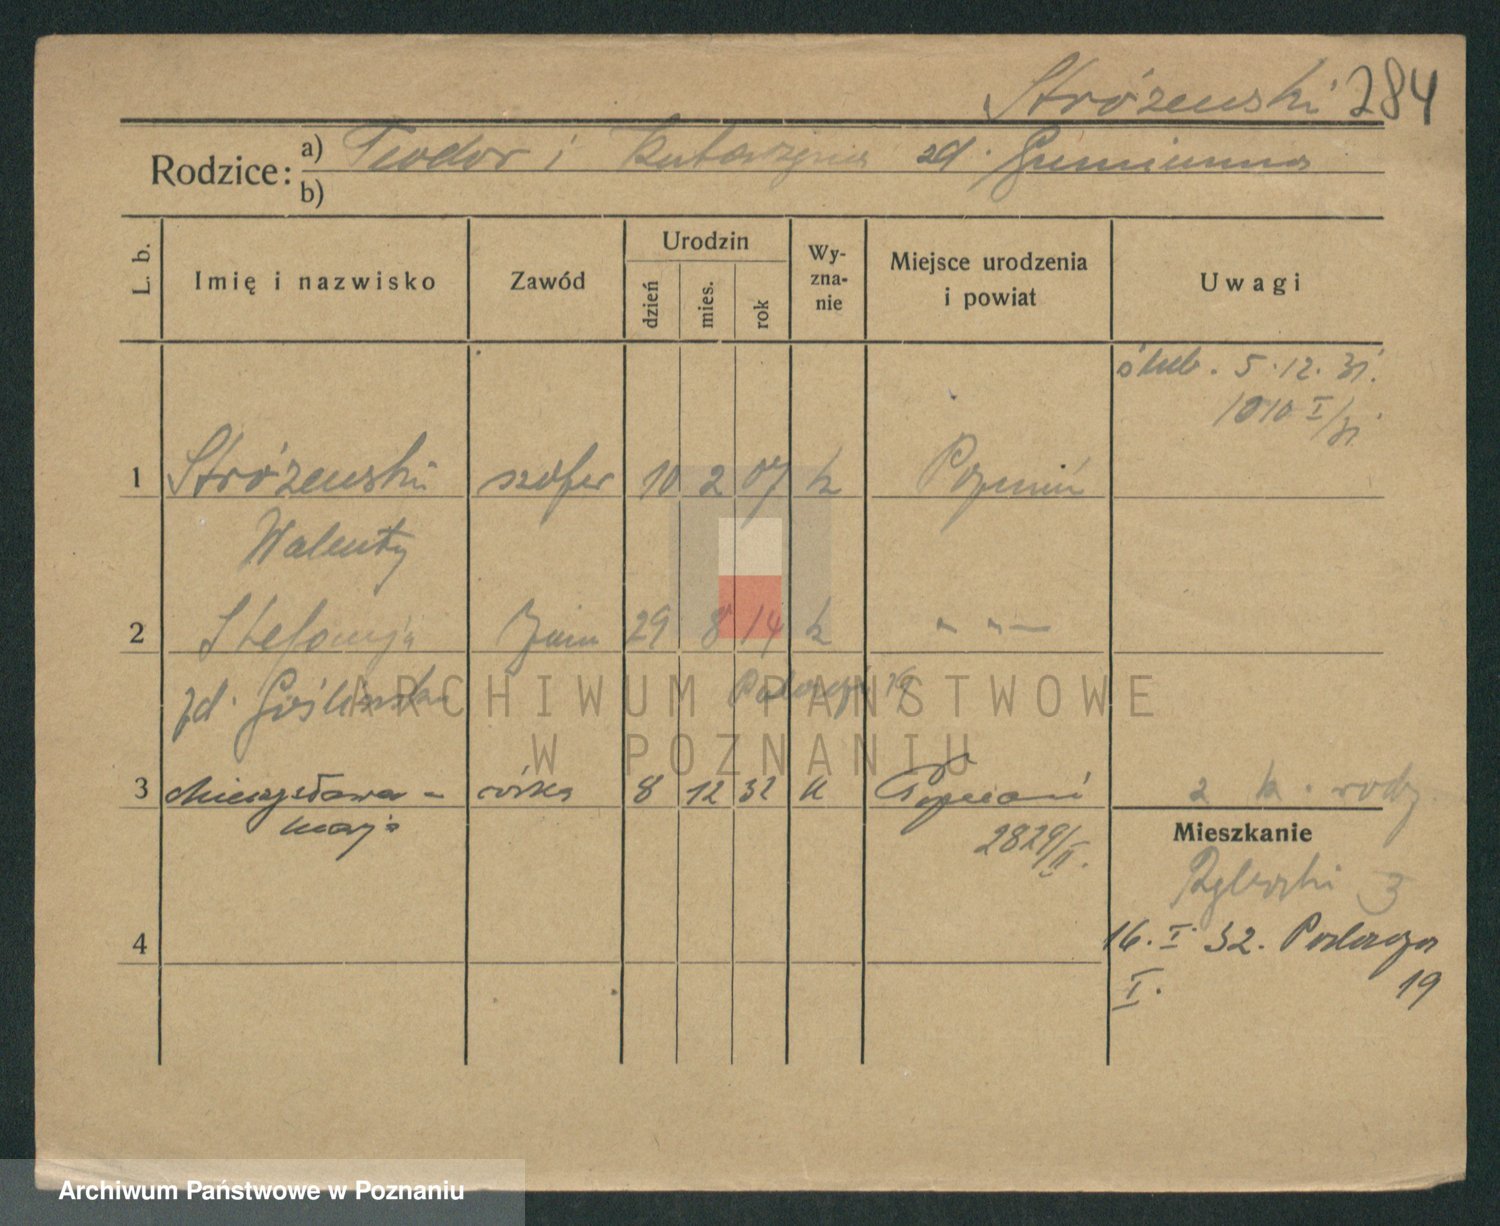 Stróżewski 284
Rodzice: a) Teodor i Katarzyna zd.
b)
L. b.
Imię i nazwisko
Zawód
Urodzin
dzień
mies.
rok
Wy-
zna-
nie
Miejsce urodzenia
i powiat
Uwagi
ślub. 5.12.31.
1010 I/31
1 Stróżewski szofer 10 2 07 k Poznań
Walenty
2 Stefanja żona 29 8 14 k - - -
zd. Goślińska
ARCHIWUM PAŃSTWOWE
W POZNANIU
3 Mieczysława - córka 8 12 32 k Poznań 2 k. rodz.
Marja
2829/II.
Mieszkanie
3
4
16. I. 32. Podlaczyn
I. 19
Archiwum Państwowe w Poznaniu